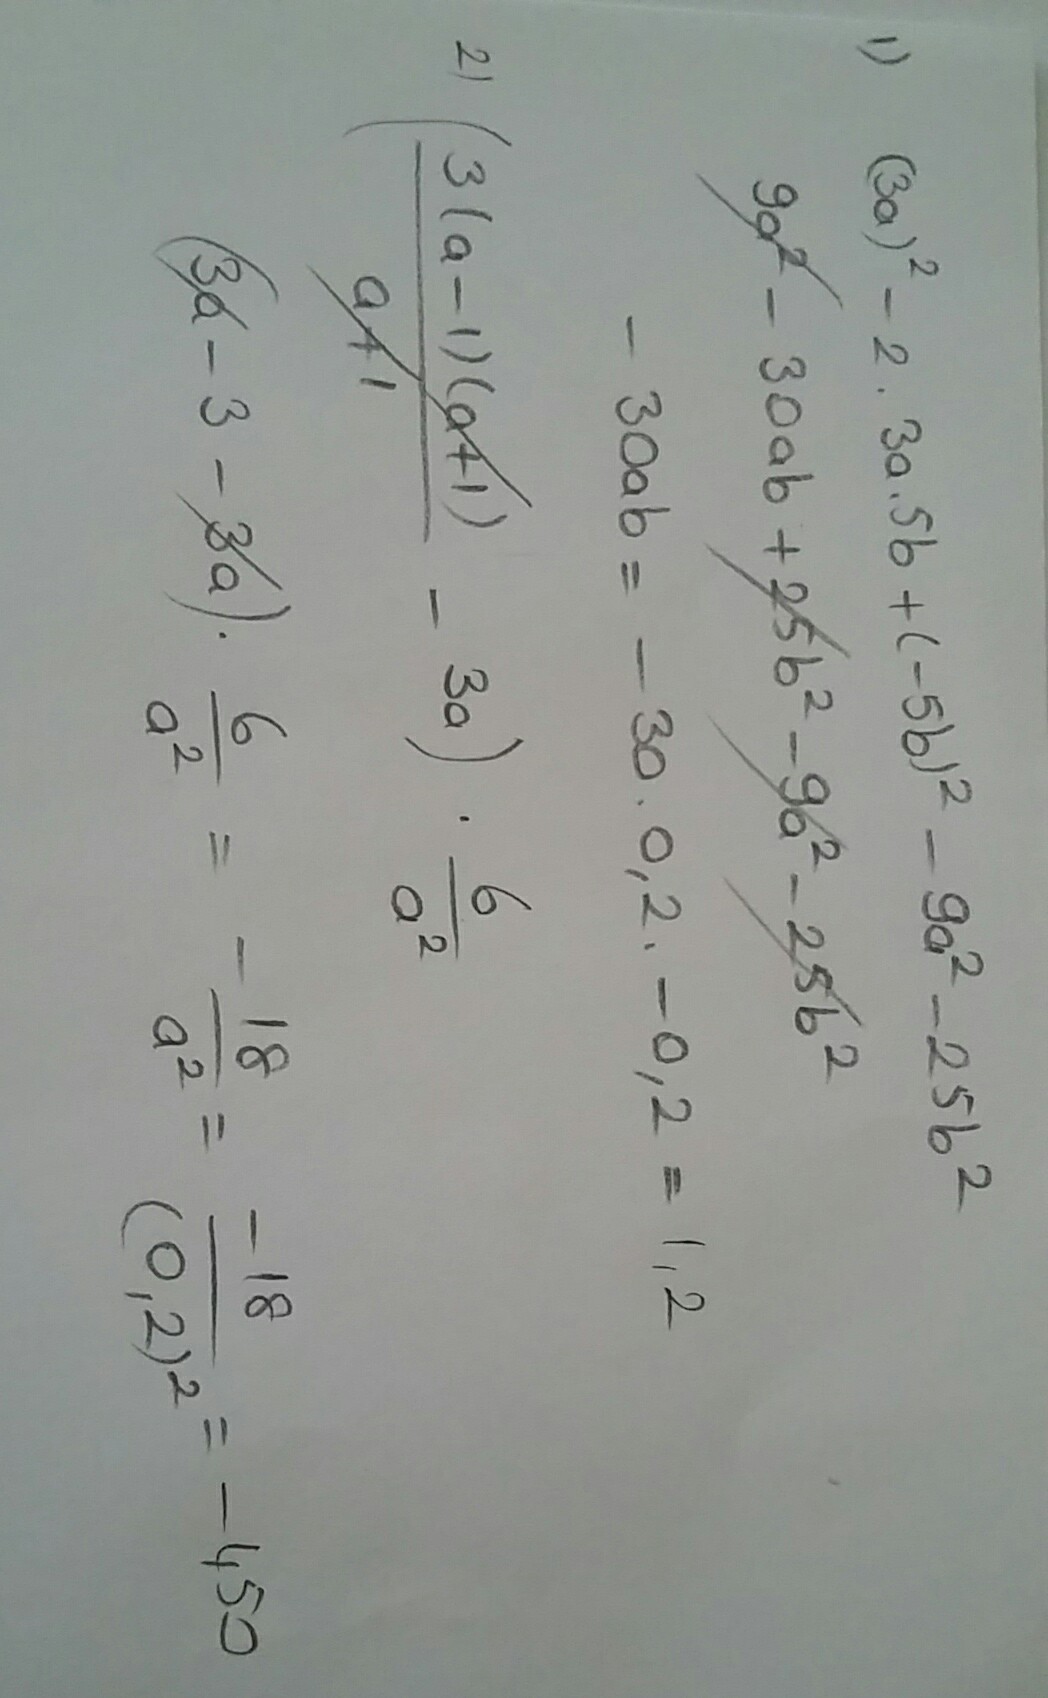 1) (3a)² - 2 . 3a . 5b + (-5b)² - 9a² - 25b²
9a² - 30ab + 25b² - 9a² - 25b²
- 30ab = - 30 . 0,2 . - 0,2 = 1,2
2) (3(a-1)(a+1) / a+1 - 3a) . 6/a²
(3a - 3 - 3a) . 6/a² = - 18/a² = -18/(0,2)² = -450